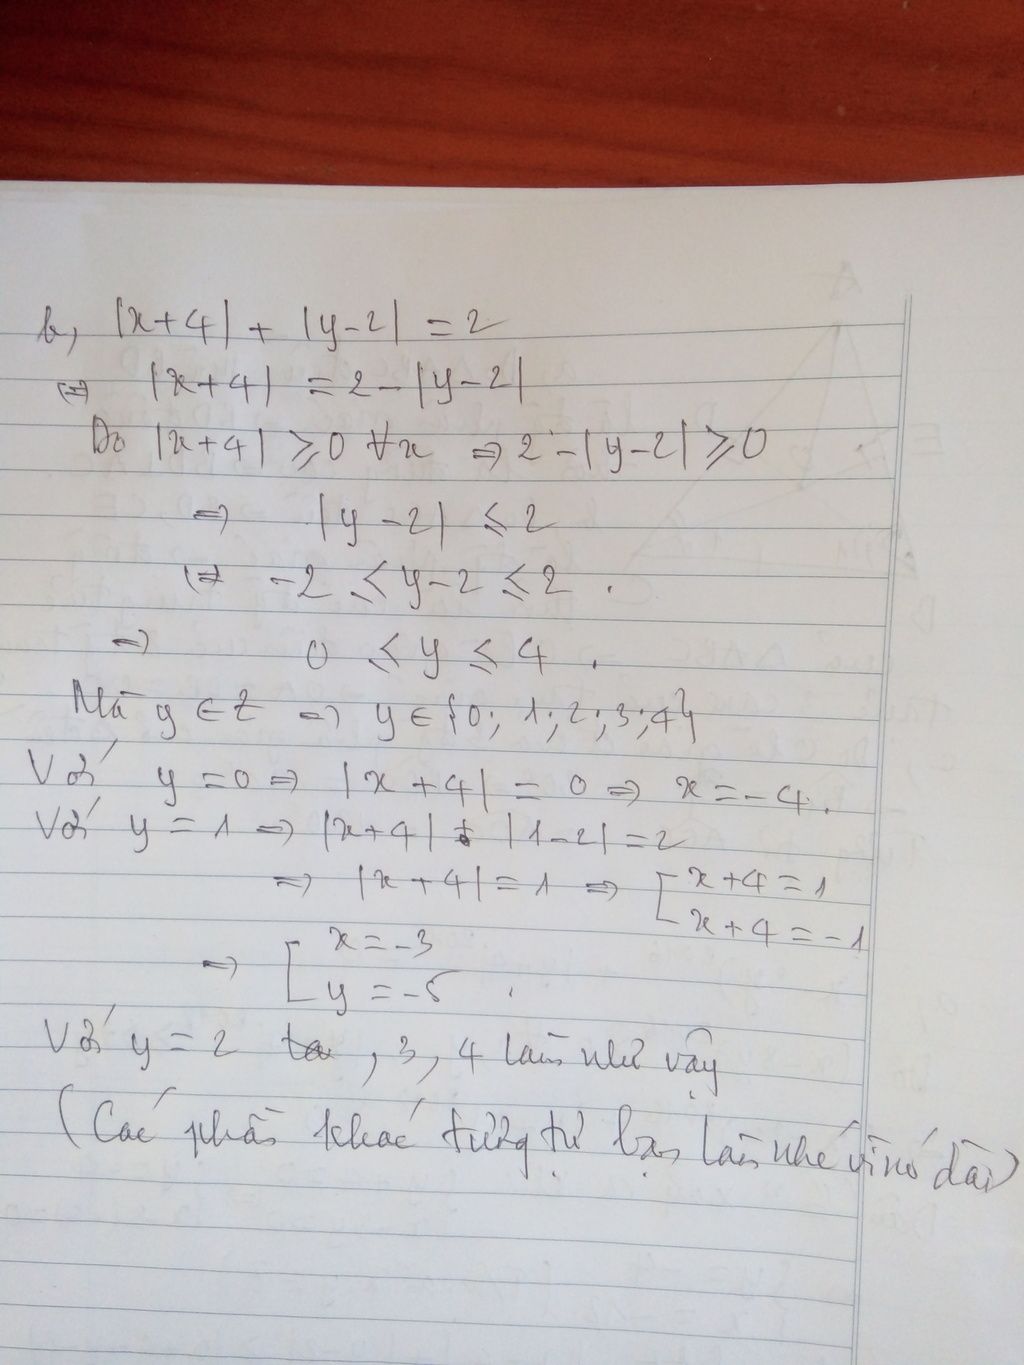 b, |x+4| + |y-2| = 2
⇔ |x+4| = 2-|y-2|
Do |x+4| ⩾ 0 ∀x ⇒ 2-|y-2| ⩾ 0
⇒ |y-2| ⩽ 2
⇔ -2 ⩽ y-2 ⩽ 2.
⇒ 0 ⩽ y ⩽ 4.
Mà y ∈ Z ⇒ y ∈ {0; 1; 2; 3; 4}
Với y = 0 ⇒ |x+4| = 0 ⇒ x = -4.
Với y = 1 ⇒ |x+4| + |1-2| = 2
⇒ |x+4| = 1 ⇒ [ x+4 = 1
x+4 = -1
⇒ [ x = -3
y = -5.
Với y = 2, 3, 4 làm như vậy
(Các phần khác tương tự bạn làm nhé vì nó dài)